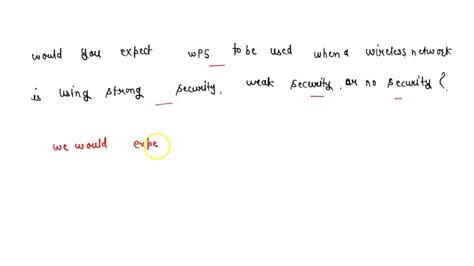 would you expect WPS to be used when a wireless network
is using strong security, weak security, or no security?
we would expe